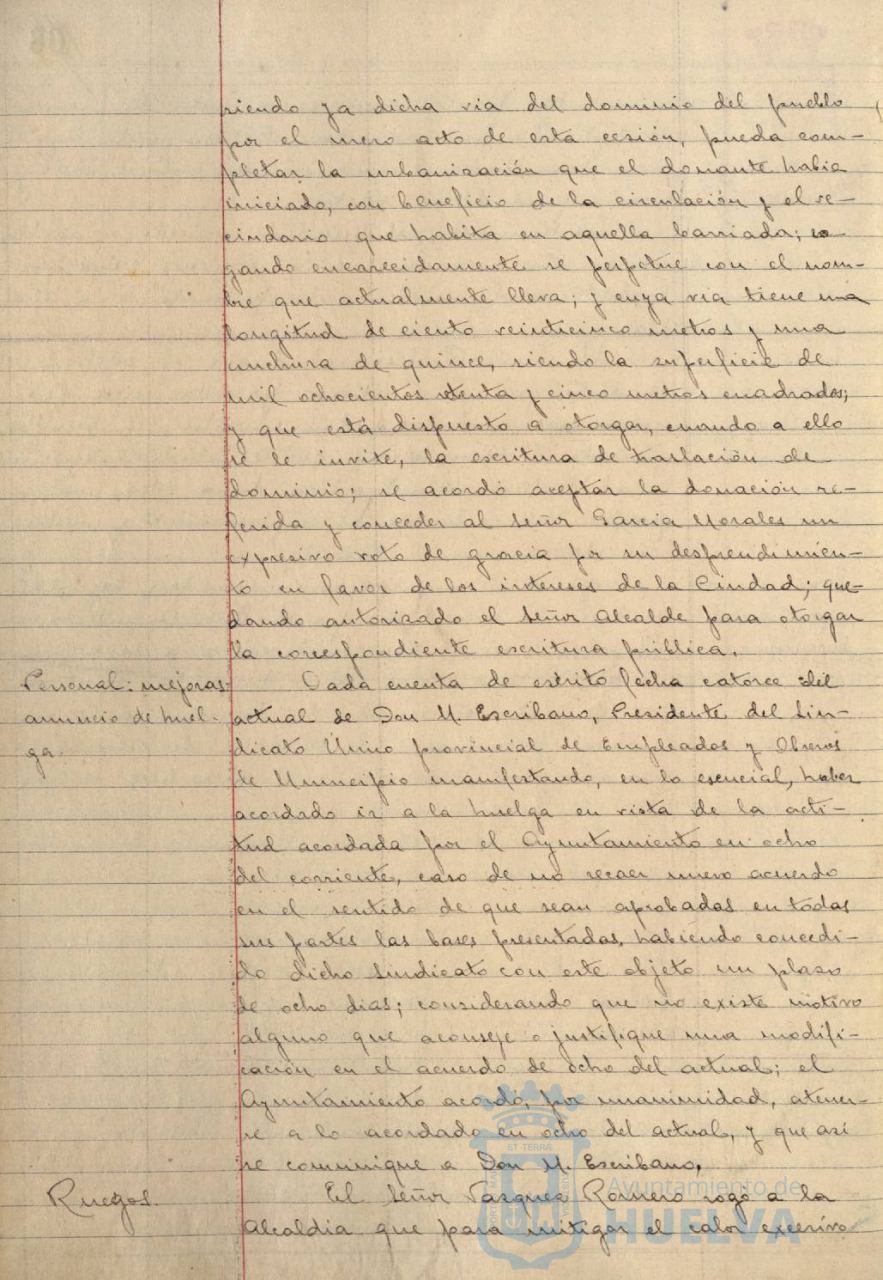 siendo ya dicha via del dominio del pueblo,
por el mero acto de esta cesión, pueda com-
pletar la urbanización que el donante habia
iniciado, con beneficio de la circulación y el ve-
cindario que habita en aquella barriada; ro-
gando encarecidamente se perpetue con el nom-
bre que actualmente lleva; y cuya via tiene una
longitud de ciento veinticinco metros y una
anchura de quince, siendo la superficie de
mil ochocientos setenta y cinco metros cuadrados;
y que está dispuesto a otorgar, cuando a ello
se le invite, la escritura de traslación de
dominio; se acordó aceptar la donación re-
ferida y conceder al Señor Garcia Morales un
expresivo voto de gracia por su desprendimien-
to en favor de los intereses de la Ciudad; que-
dando autorizado el Señor Alcalde para otorgar
la correspondiente escritura pública.
Personal: mejoras: Dada cuenta de escrito fecha catorce del
anuncio de huel- actual de Don M. Escribano, Presidente del Sin-
ga. dicato Único provincial de Empleados y Obreros
de Municipio manifestando, en lo esencial, haber
acordado ir a la huelga en vista de la acti-
tud acordada por el Ayuntamiento en ocho
del corriente, caso de no recaer nuevo acuerdo
en el sentido de que sean aprobadas en todas
sus partes las bases presentadas, habiendo concedi-
do dicho Sindicato con este objeto un plazo
de ocho dias; considerando que no existe motivo
alguno que aconseje o justifique una modifi-
cación en el acuerdo de ocho del actual; el
Ayuntamiento acordó, por unanimidad, atener-
se a lo acordado en ocho del actual, y que así
se comunique a Don M. Escribano.
Ruegos. El Señor Vazquez Romero rogó a la
Alcaldia que para mitigar el calor excesivo
Ayuntamiento de
HUELVA